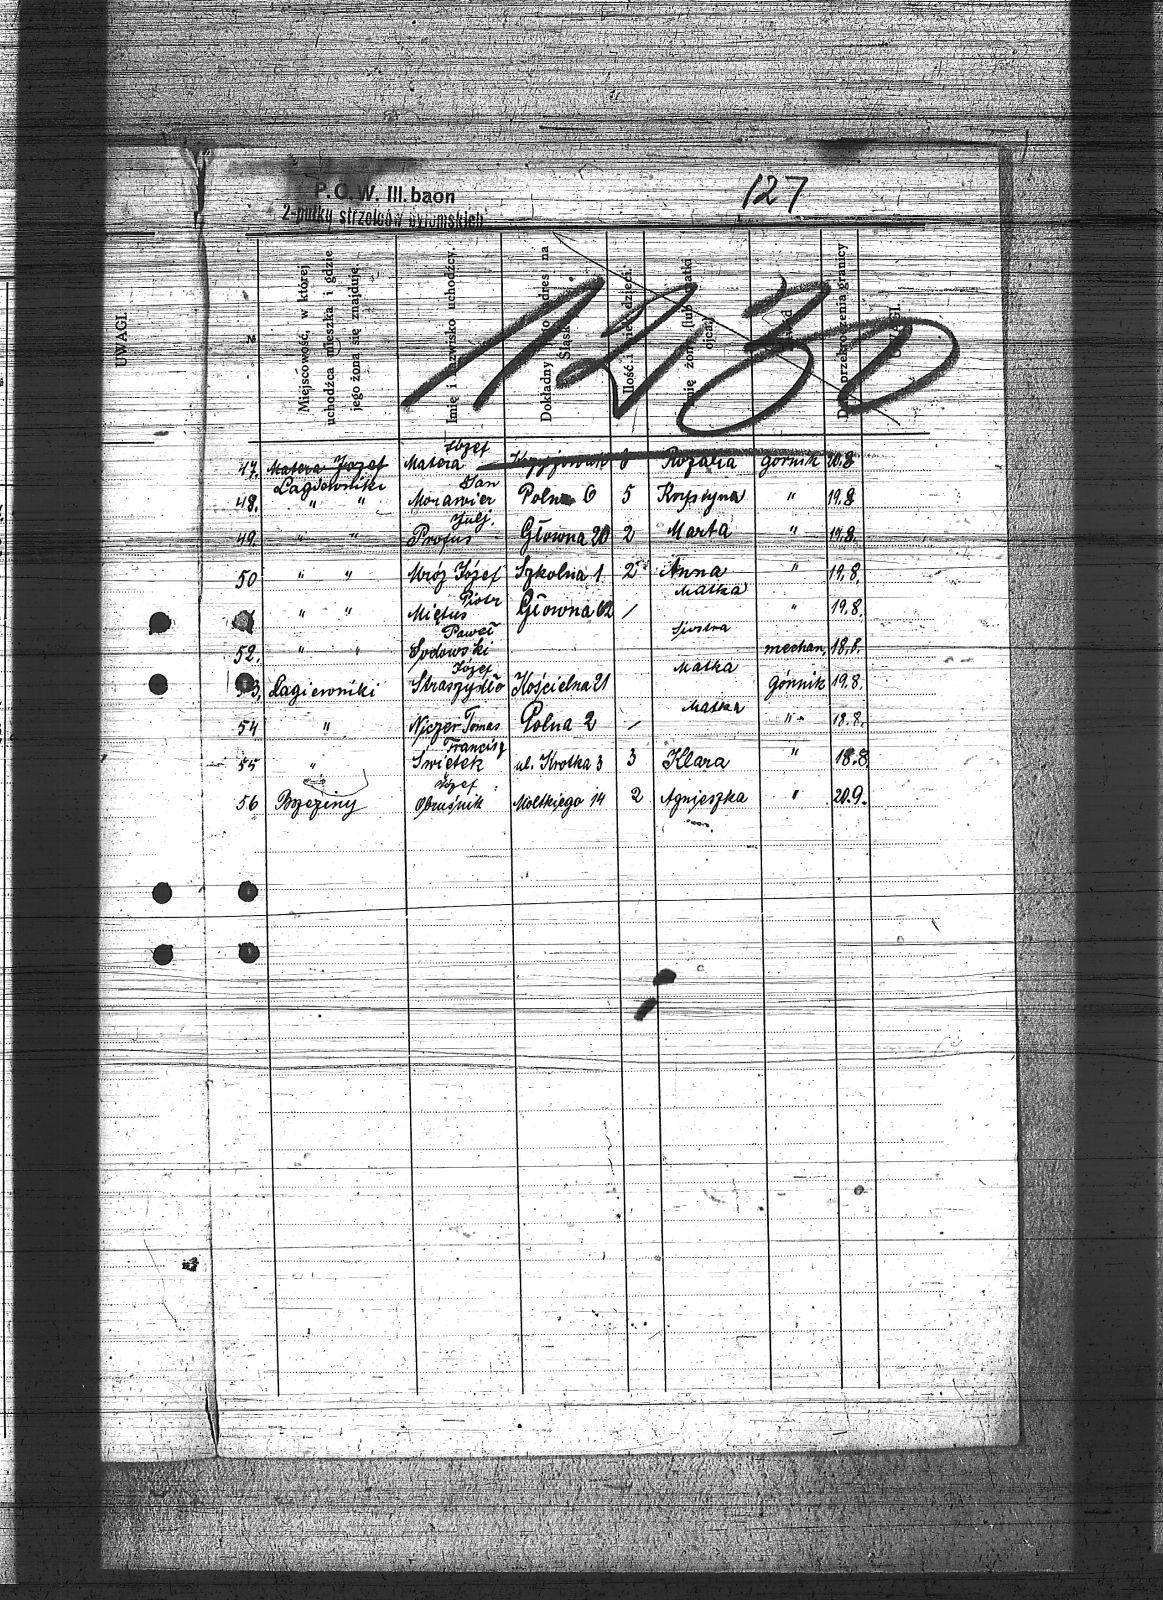 127
P.O.W. III. baon
2-pułku strzelców bytomskich
UWAGI.
№
Miejscowość, w której uchodźca mieszka i gdzie jego żona się znajduje.
Imię i nazwisko uchodźcy.
Dokładny adres na Śląsku
Ilość i dzieci.
Imię żony (lub matki ojca)
przekroczenia granicy
1230
47. Matera Józef Łagiewniki Matera Józef Rozalia górnik 20.8
48. " " Morawier Jan Polna 6 5 Krystyna " 19.8
49. " " Profus Julj. Główna 20 2 Marta " 19.8.
50 " " Mróz Józef Szkolna 1 2 Anna " 19.8.
" " Miętus Piotr Główna 62 / Matka " 19.8.
52. " " Sodowski Paweł Siostra mechan. 18.8.
53. Łagiewniki Straszydło Józef Kościelna 21 Matka Górnik 19.8.
54 " Niczer Tomas Polna 2 / Matka " 18.8.
55 " Świetek Francisz ul. Krotka 3 3 Klara " 18.8
56 Brzeziny Obruśnik Józef Moltkiego 14 2 Agnieszka " 20.9.